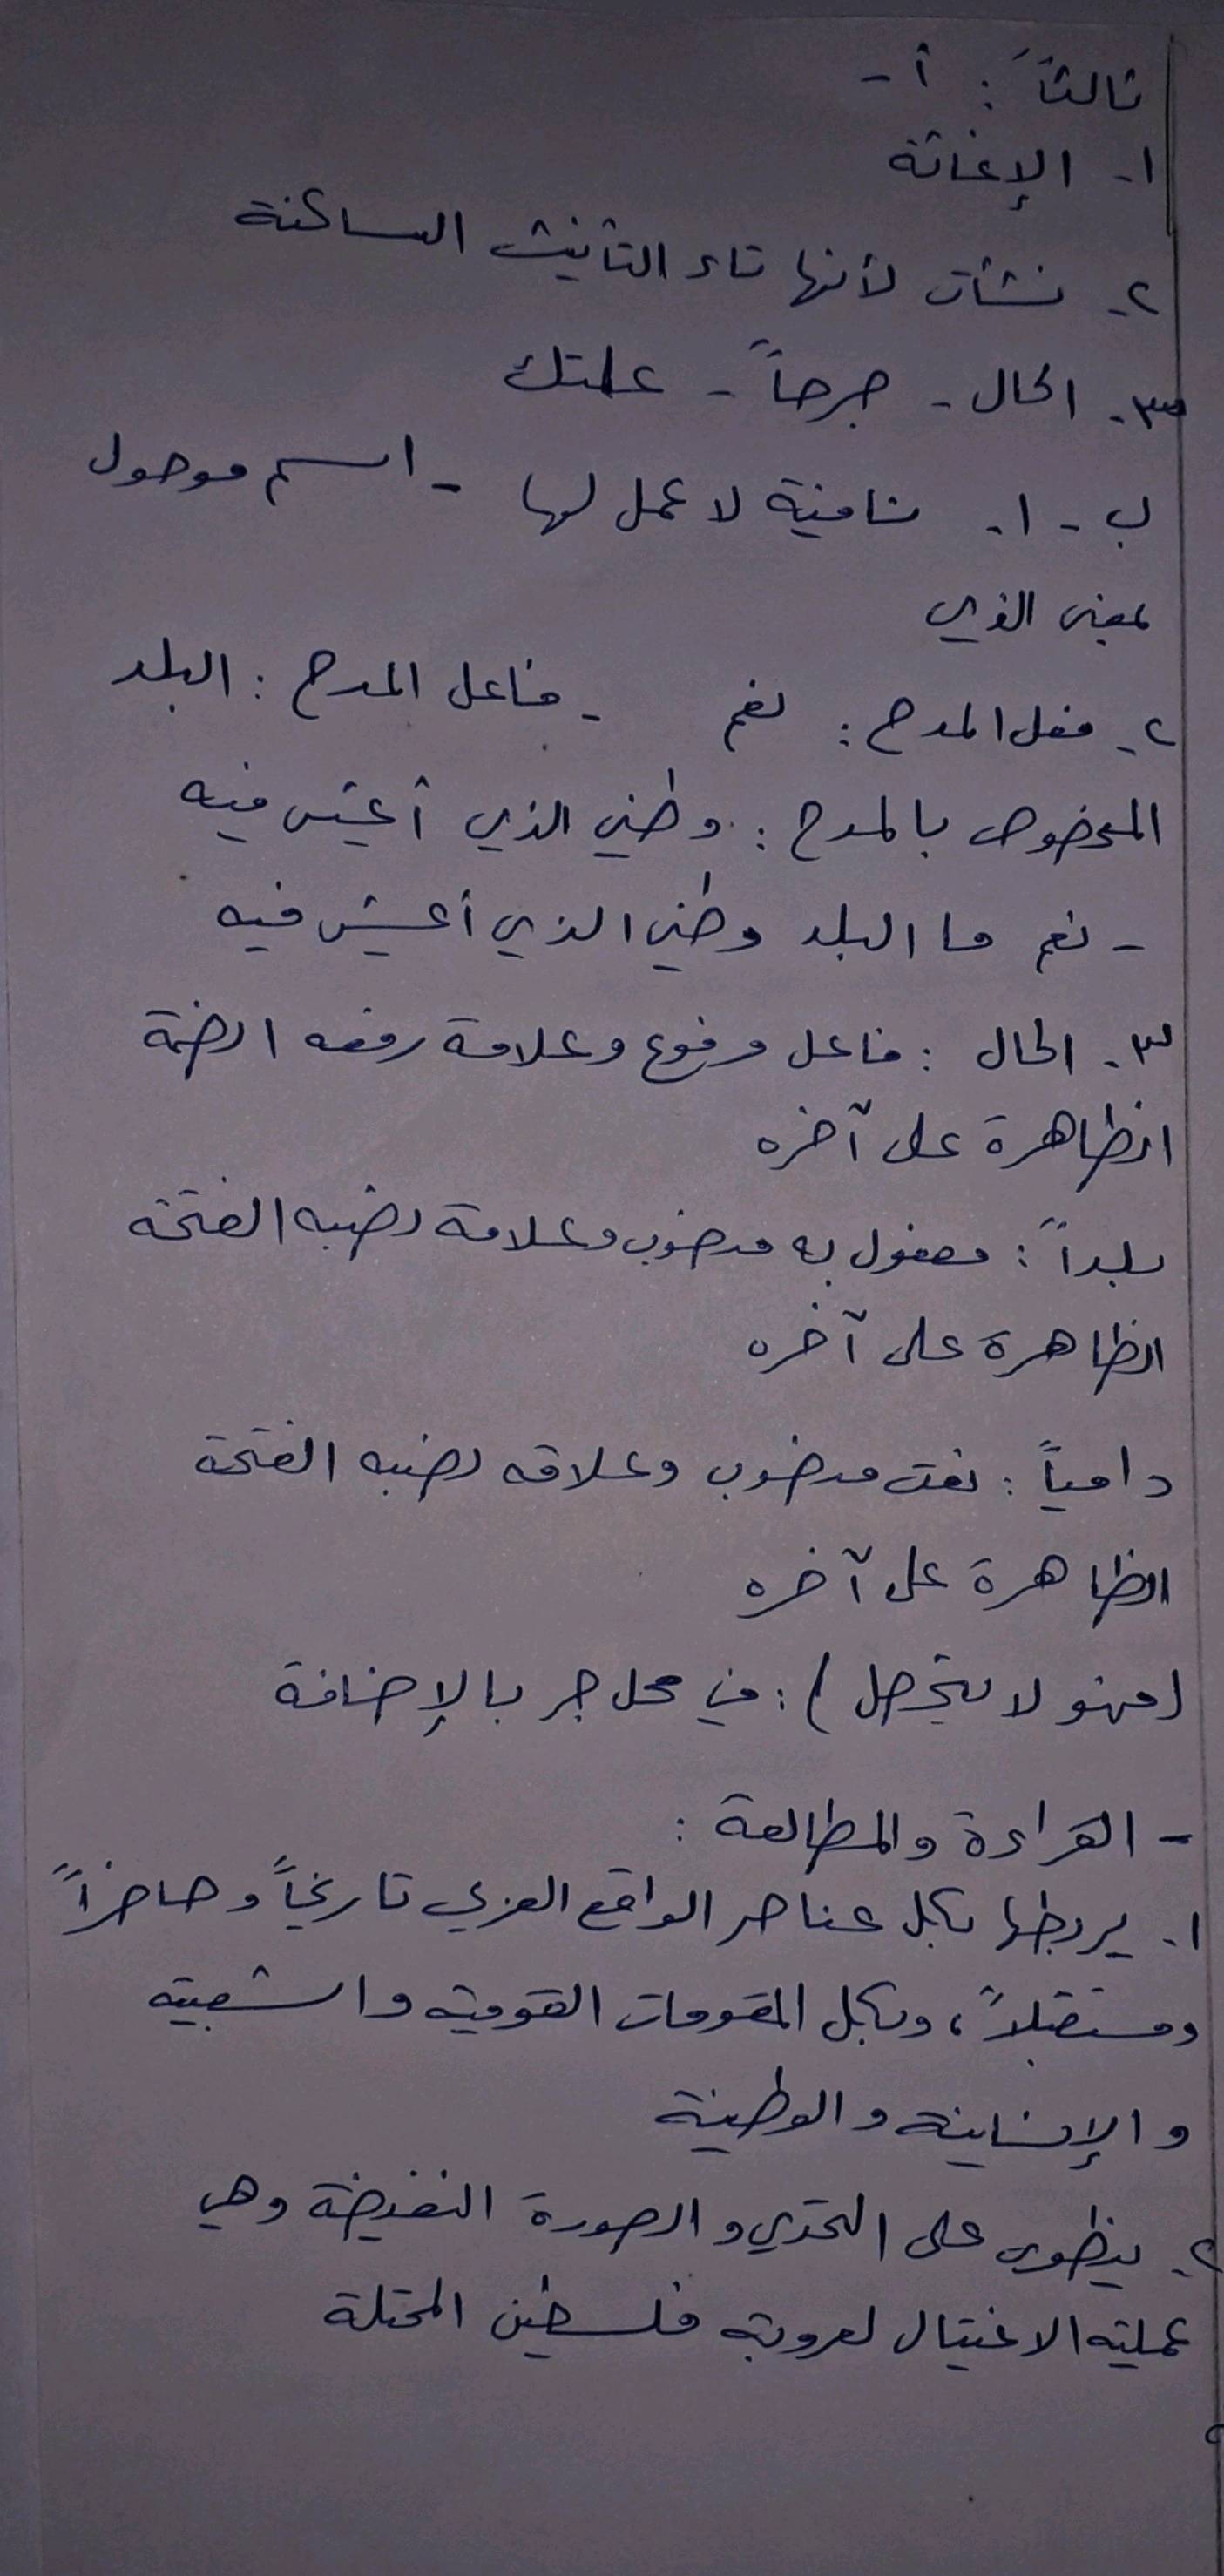 ثالثاً : أ -
١- الإغاثة
٢- نشأت لأنها تاء التأنيث الساكنة
٣- الحال - جرحاً - علتك
ب - ١- نافية لا عمل لها - اسم موصول
بمعنى الذي
٢- فعل المدح : نعم - فاعل المدح : البلد
المخصوص بالمدح : وطني الذي أعيش فيه
- نعم ما البلد وطني الذي أعيش فيه
٣- الحال : فاعل مرفوع وعلامة رفعه الضمة
الظاهرة على آخره
بلداً : مفعول به منصوب وعلامة نصبه الفتحة
الظاهرة على آخره
دامياً : نعت منصوب وعلامة نصبه الفتحة
الظاهرة على آخره
(فهو لا يتجصل) : في محل جر بالإضافة
- القراءة والمطالعة :
١- يربطها بكل عناصر الواقع العربي تاريخاً وحاضراً
ومستقبلاً ، وبكل المقومات القومية والشعبية
والإنسانية والوطنية
٢- ينطوي على التحدي والصورة النقيضة وهي
عملية الاغتيال لعروبة فلسطين المحتلة